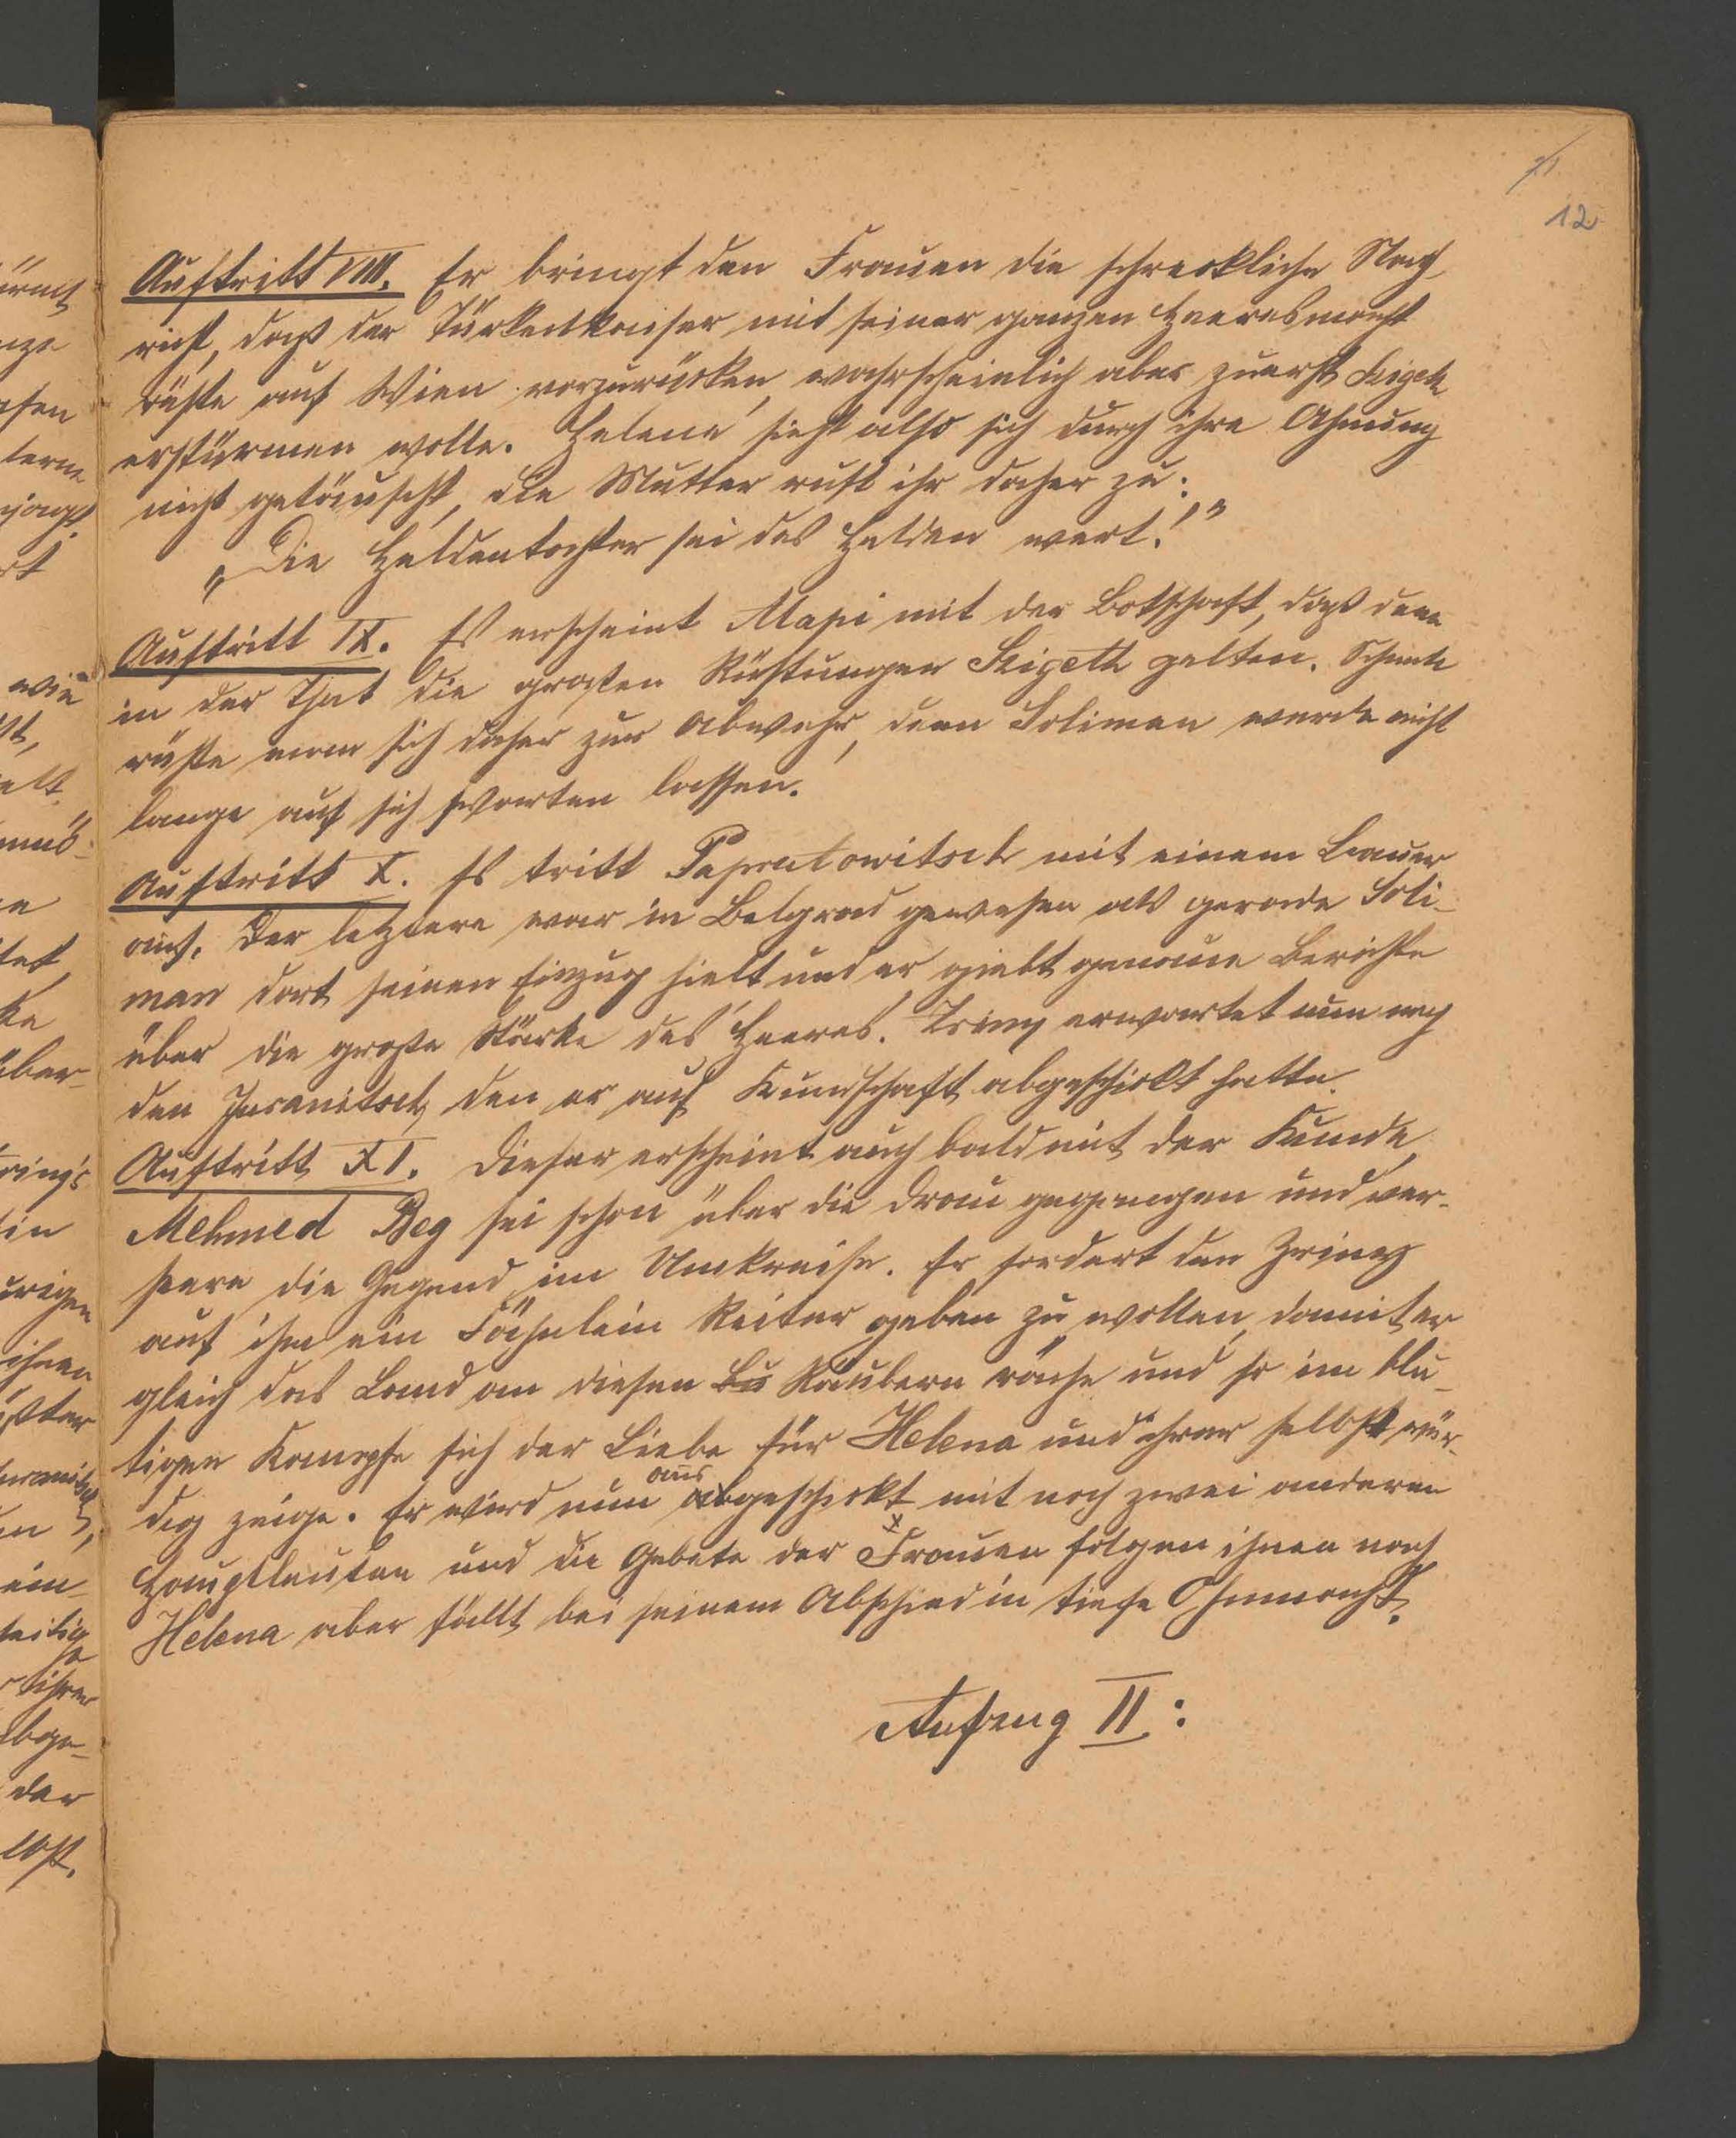 12
Auftritt VIII. Er bringt den Frauen die schreckliche Nach
richt, daß der Türkenkaiser mit seiner ganzen Heeresmacht
rüste auf Wien vorzurücken, wahrscheinlich aber zuerst Szigeth
erstürmen wolle. Helene sieht also sich durch ihre Ahnung
nicht getäuscht, die Mutter ruft ihr daher zu:
„Die Heldentochter sei des Helden wert!"
Auftritt IX. Es erscheint Alapi mit der Botschaft, daß denn
in der That die großen Rüstungen Szigeth gelten.
rüste man sich daher zur Abwehr, denn Soliman werde nicht
lange auf sich warten lassen.
Auftritt X. Es tritt Paprutowitsch mit einem Bauer
auf. Der letztere war in Belgrad gewesen als gerade Soli-
man dort seinen Einzug hielt und er giebt genaue Berichte
über die große Stärke des Heeres. Zriny erwartet nun noch
den Juranitsch, den er auf Kundschaft abgeschickt hatte.
Auftritt XI. Dieser erscheint auch bald mit der Kunde,
Mehmed Beg sei schon über die Drau gegangen und ver-
heere die Gegend im Umkreise. Er fordert den Zriny
auf ihm ein Fähnlein Reiter geben zu wollen, damit er
gleich das Land an diesen Bu Räubern räche und so im blu-
tigen Kampfe sich der Liebe für Helena und ihrer selbst wür-
dig zeige. Er wird nun aus abgeschickt mit noch zwei anderen
Hauptleuten und die Gebete der Frauen folgen ihnen nach
Helena aber fällt bei seinem Abschied in tiefe Ohnmacht.
Aufzug II: